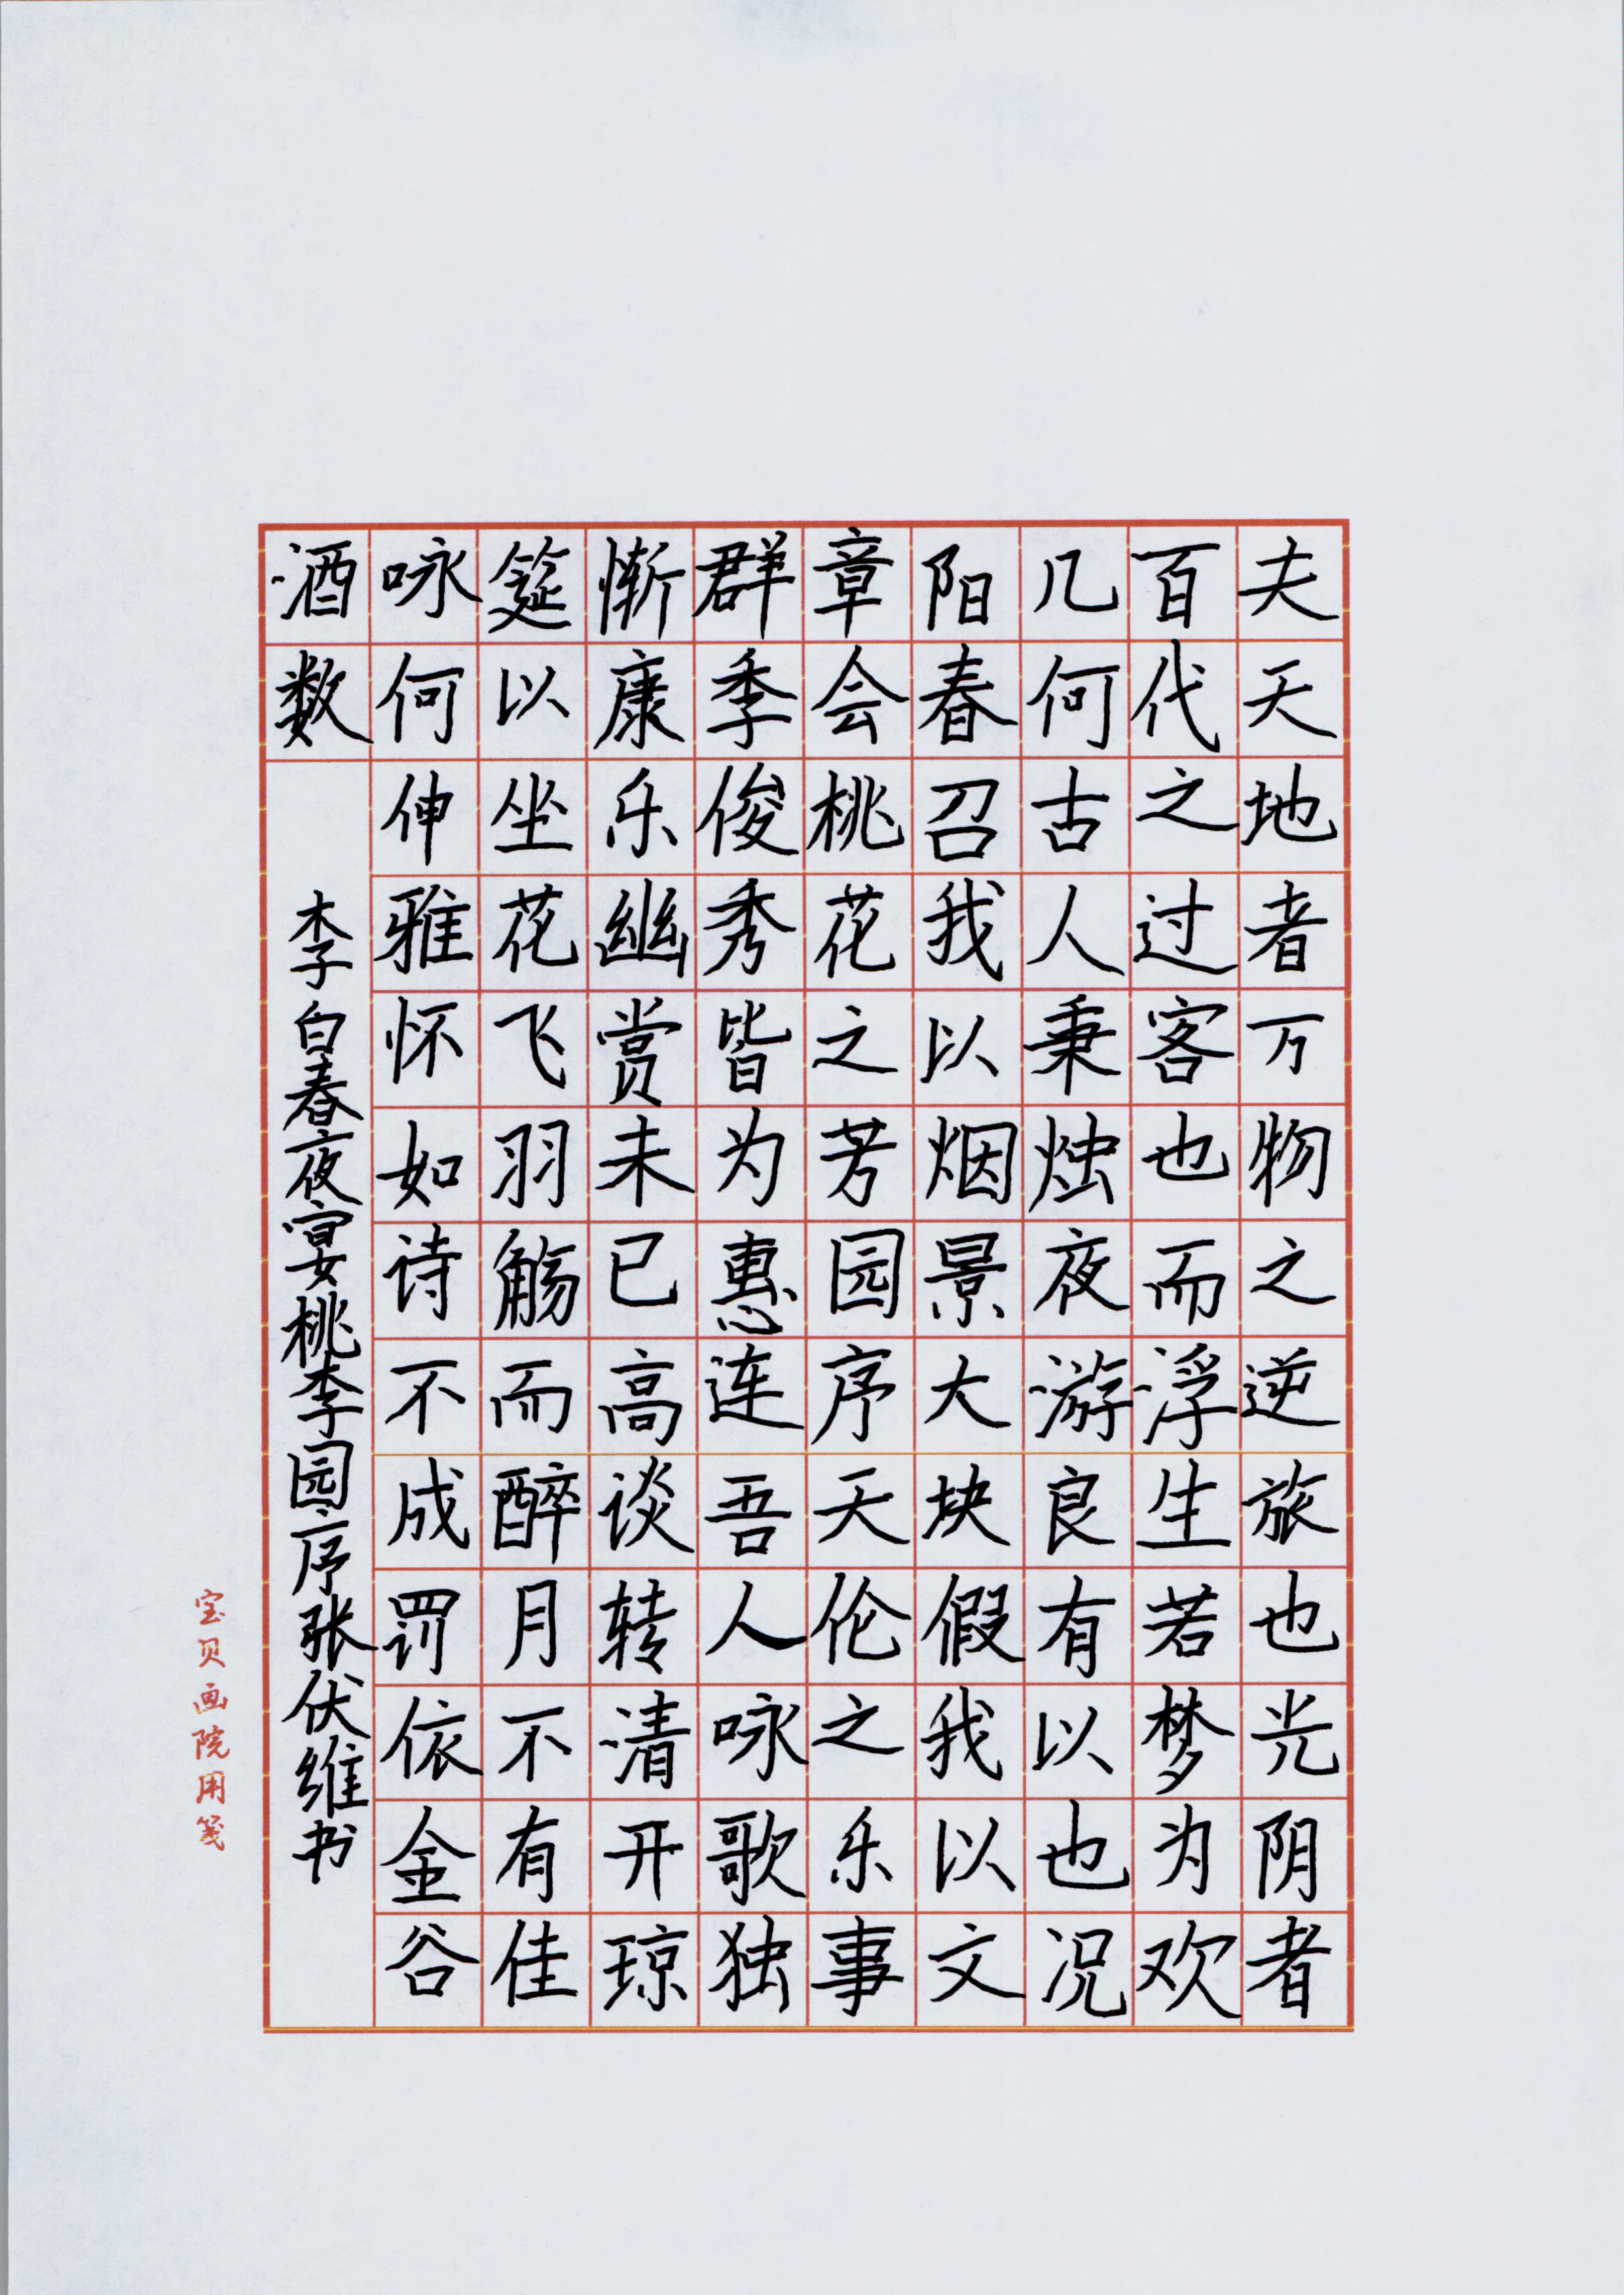 夫天地者万物之逆旅也光阴者
百代之过客也而浮生若梦为欢
几何古人秉烛夜游良有以也况
阳春召我以烟景大块假我以文
章会桃花之芳园序天伦之乐事
群季俊秀皆为惠连吾人咏歌独
惭康乐幽赏未已高谈转清开琼
筵以坐花飞羽觞而醉月不有佳
咏何伸雅怀如诗不成罚依金谷
酒数
李白春夜宴桃李园序张伏维书
宝贝画院用笺